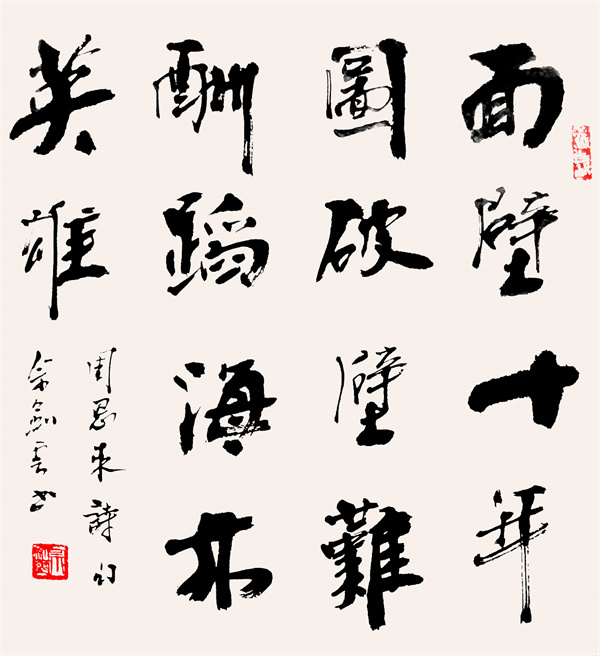 面壁十年
圖破壁難
酬蹈海亦
英雄
周恩来詩句
劍雲书